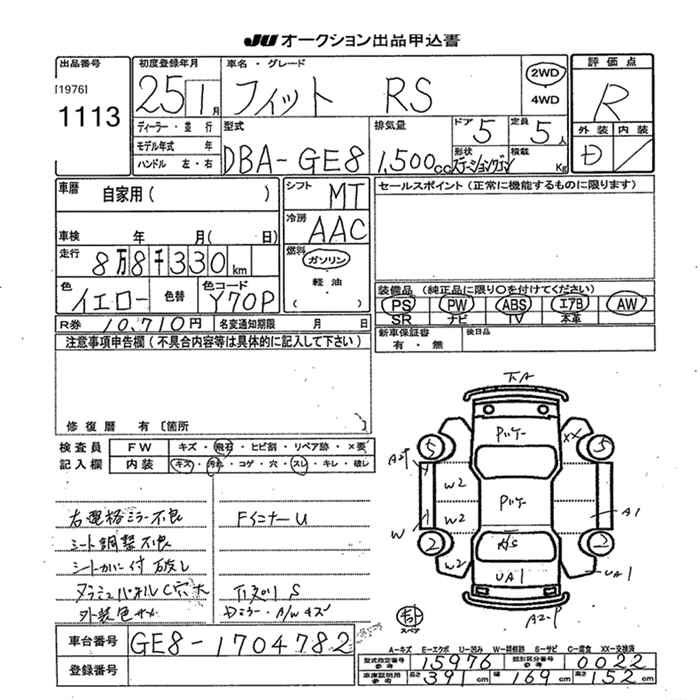 JU オークション出品申込書
出品番号
[1976]
1113
初度登録年月
25 1月
車名・グレード
フィット RS
2WD
4WD
評価点
R
外装 内装
D /
ディーラー・並行
モデル年式 年
ハンドル 左・右
型式
DBA-GE8
排気量
1,500cc
ドア 5
定員 5人
形状
ステーションワゴン
積載
Kg
車歴
自家用( )
シフト
MT
冷房
AAC
燃料
ガソリン
軽油
( )
車検 年 月( 日)
走行
8万8千330km
色
イエロー
色替
色コード
Y70P
R券 10,710円
名変通知期限 月 日
セールスポイント(正常に機能するものに限ります)
装備品(純正品に限り○を付けてください)
PS PW ABS エアB AW
SR ナビ TV 本革
新車保証書
有・無
後日品
注意事項申告欄(不具合内容等は具体的に記入して下さい)
修復歴 有〔箇所 〕
検査員
記入欄
FW キズ・飛石・ヒビ割・リペア跡・×要
内装 キズ・汚れ・コゲ・穴・スレ・キレ・破レ
右電格ミラー不良
シート調整不良
Fインナー U
外装色サメ
下廻り S
Dミラー・A/Wキズ
下A
5
XX
5
W2
W2
W2
W
2
2
A1
UA1
UA1
A2-P
スペア
車台番号 GE8-1704782
登録番号
A-キズ E-エクボ U-凹み W-補修跡 S-サビ C-腐食 XX-交換済
型式指定番号
参考
15976
類別区分番号
参考
0022
車庫証明用
参考
長さ 391cm 幅 169cm 高さ 152cm